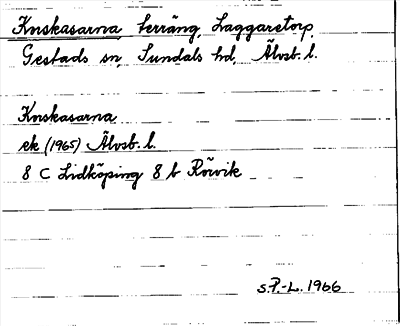 Knskasarna, terräng, Laggaretorp,
Gestads sn, Sundals hd, Älvsb. l.
Knskasarna
ek (1965) Älvsb. l.
8 C Lidköping 8 b Rörvik
S.P.-L. 1966